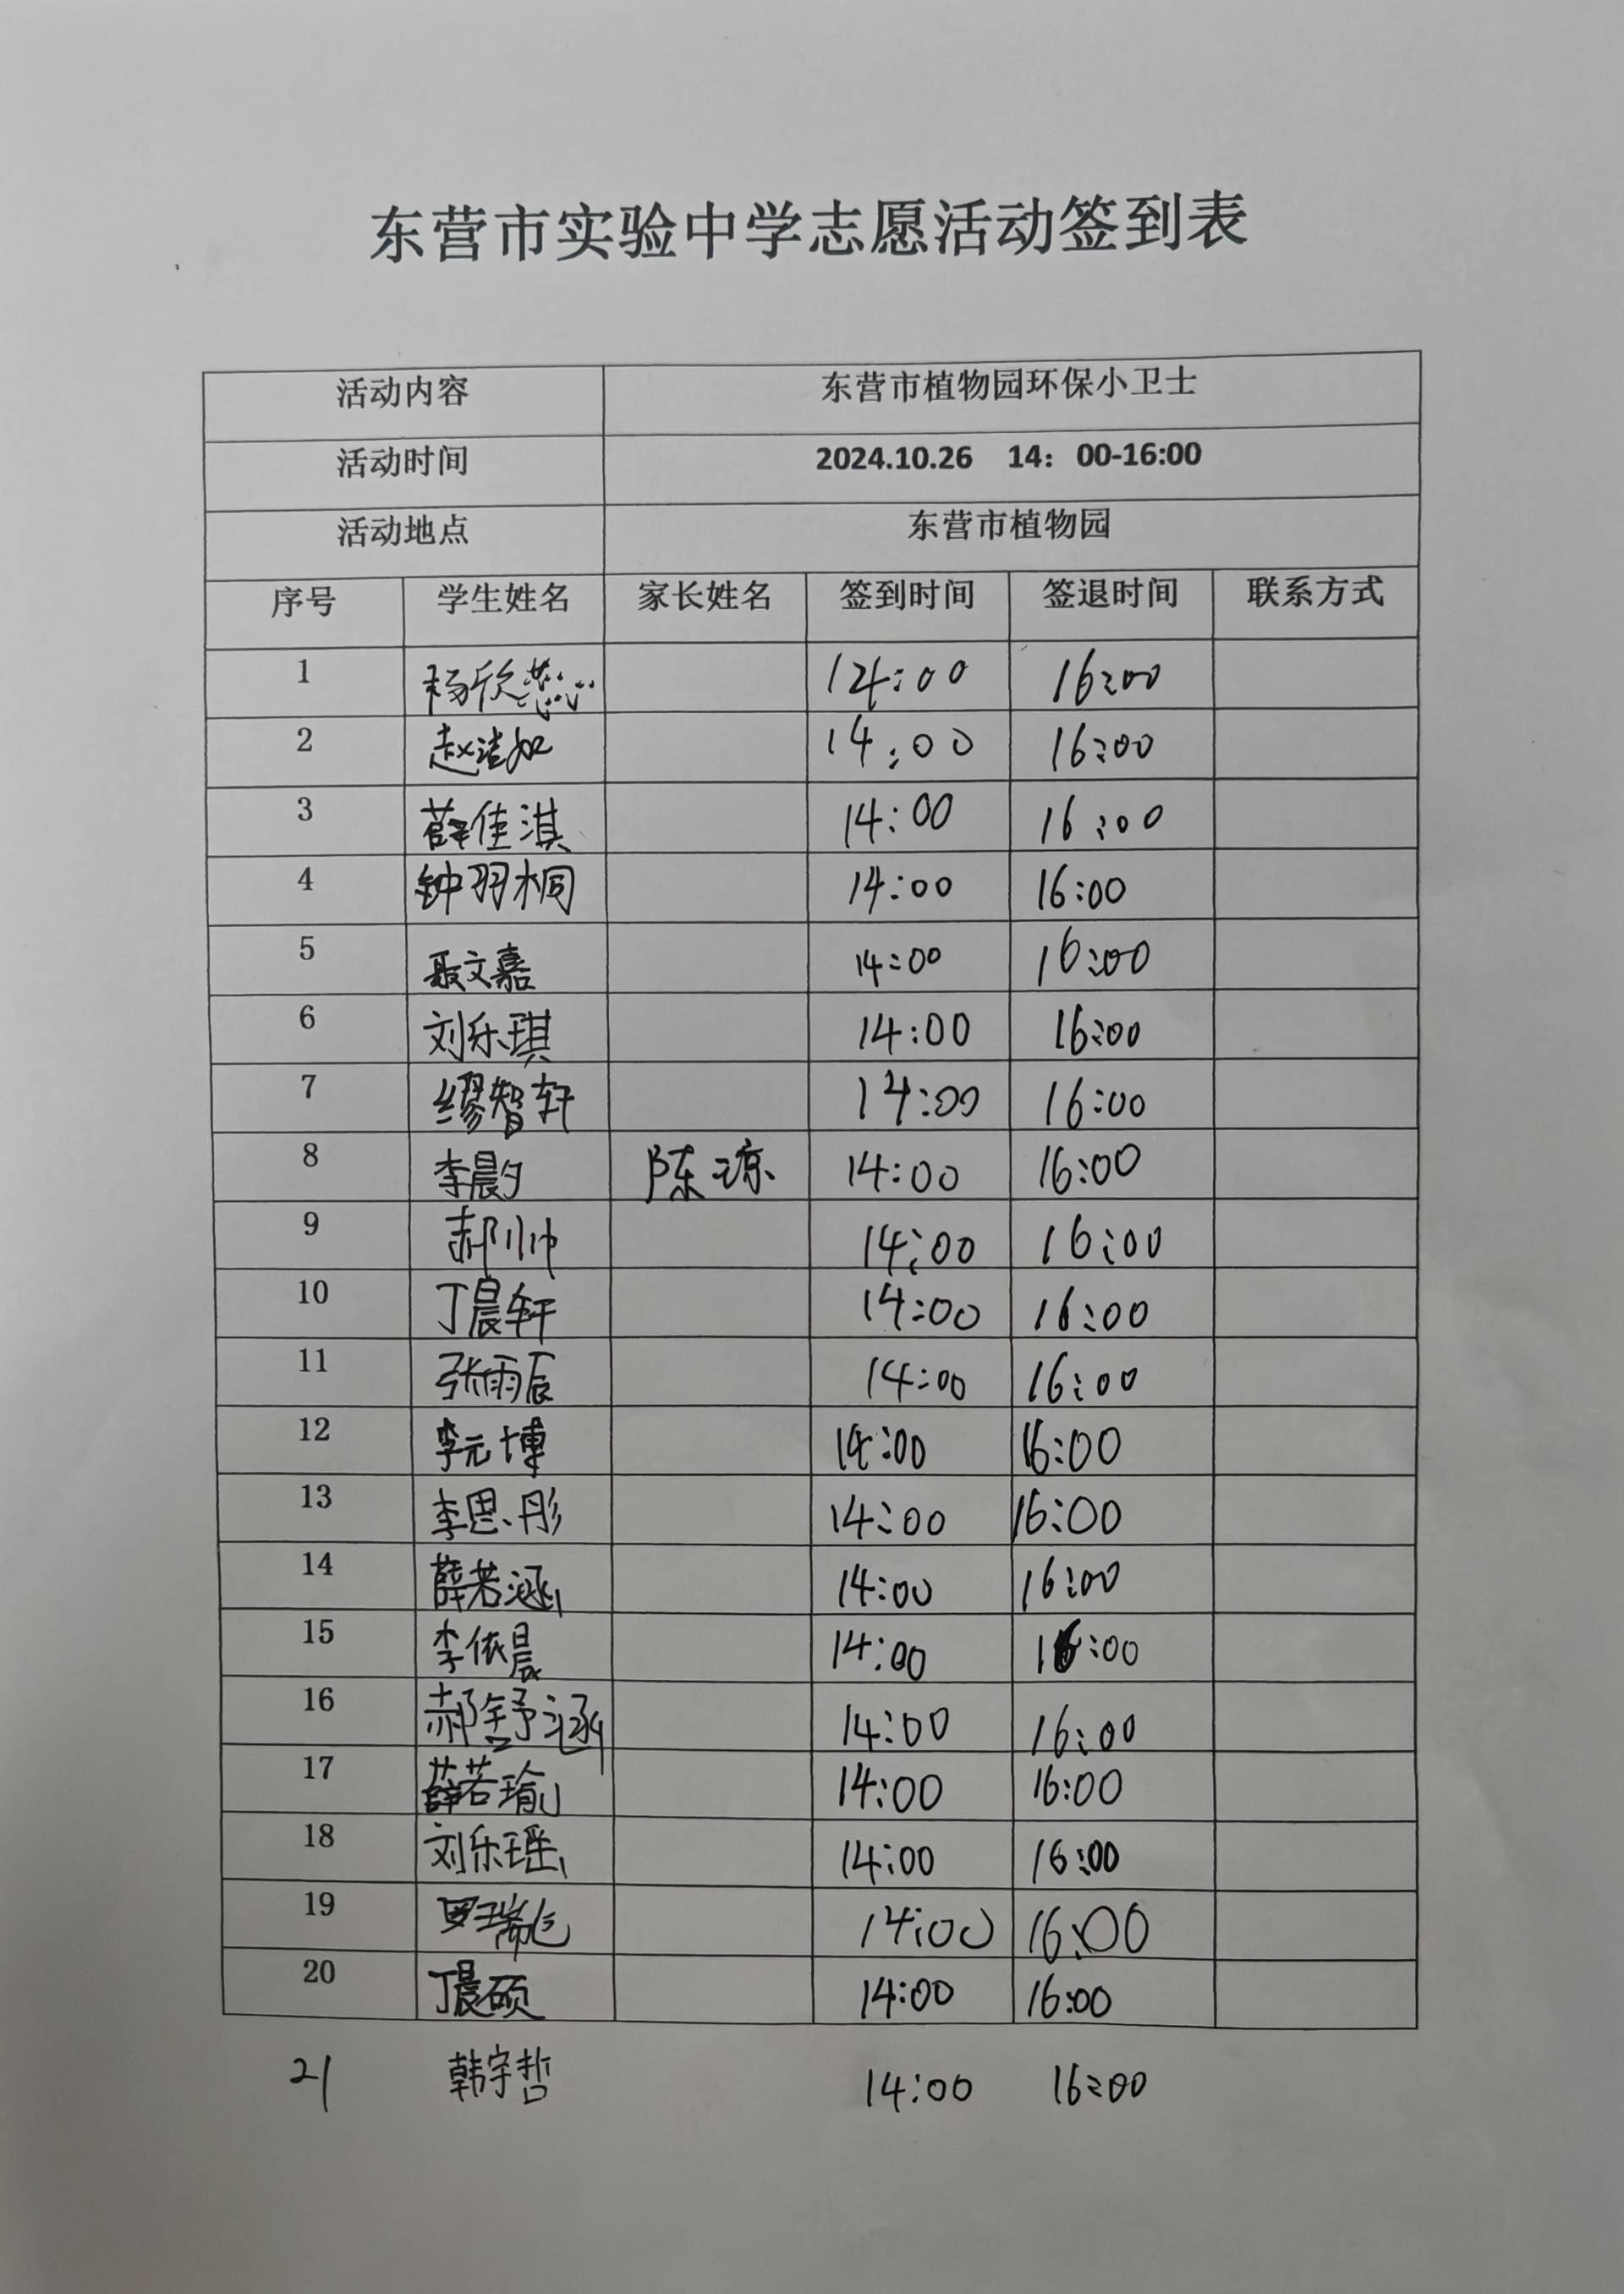 东营市实验中学志愿活动签到表
活动内容 东营市植物园环保小卫士
活动时间 2024.10.26 14：00-16:00
活动地点 东营市植物园
序号 学生姓名 家长姓名 签到时间 签退时间 联系方式
1 杨欣 14:00 16:00
2 赵洁如 14:00 16:00
3 薛佳淇 14:00 16:00
4 钟羽桐 14:00 16:00
5 聂文嘉 14:00 16:00
6 刘乐琪 14:00 16:00
7 缪智轩 14:00 16:00
8 李晨夕 陈琼 14:00 16:00
9 郝帅 14:00 16:00
10 丁晨轩 14:00 16:00
11 张雨辰 14:00 16:00
12 李元博 14:00 16:00
13 李思彤 14:00 16:00
14 薛若涵 14:00 16:00
15 李依晨 14:00 16:00
16 郝舒涵 14:00 16:00
17 薛若瑜 14:00 16:00
18 刘乐瑶 14:00 16:00
19 罗瑞 14:00 16:00
20 丁晨硕 14:00 16:00
21 韩宇哲 14:00 16:00